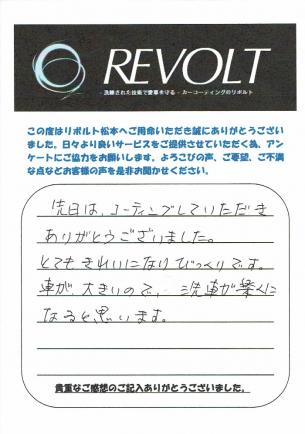 REVOLT
- 洗練された技術で愛車を守る - カーコーティングのリボルト
この度はリボルト松本へご用命いただき誠にありがとうござい
ました。日々より良いサービスをご提供させていただく為、アン
ケートにご協力をお願いします。よろこびの声、ご要望、ご不満
な点などお客様の声を是非お聞かせください。
先日は、コーティングしていただき
ありがとうございました。
とてもきれいになりびっくりです。
車が、大きいので、洗車が楽に
なると思います。
貴重なご感想のご記入ありがとうございました。